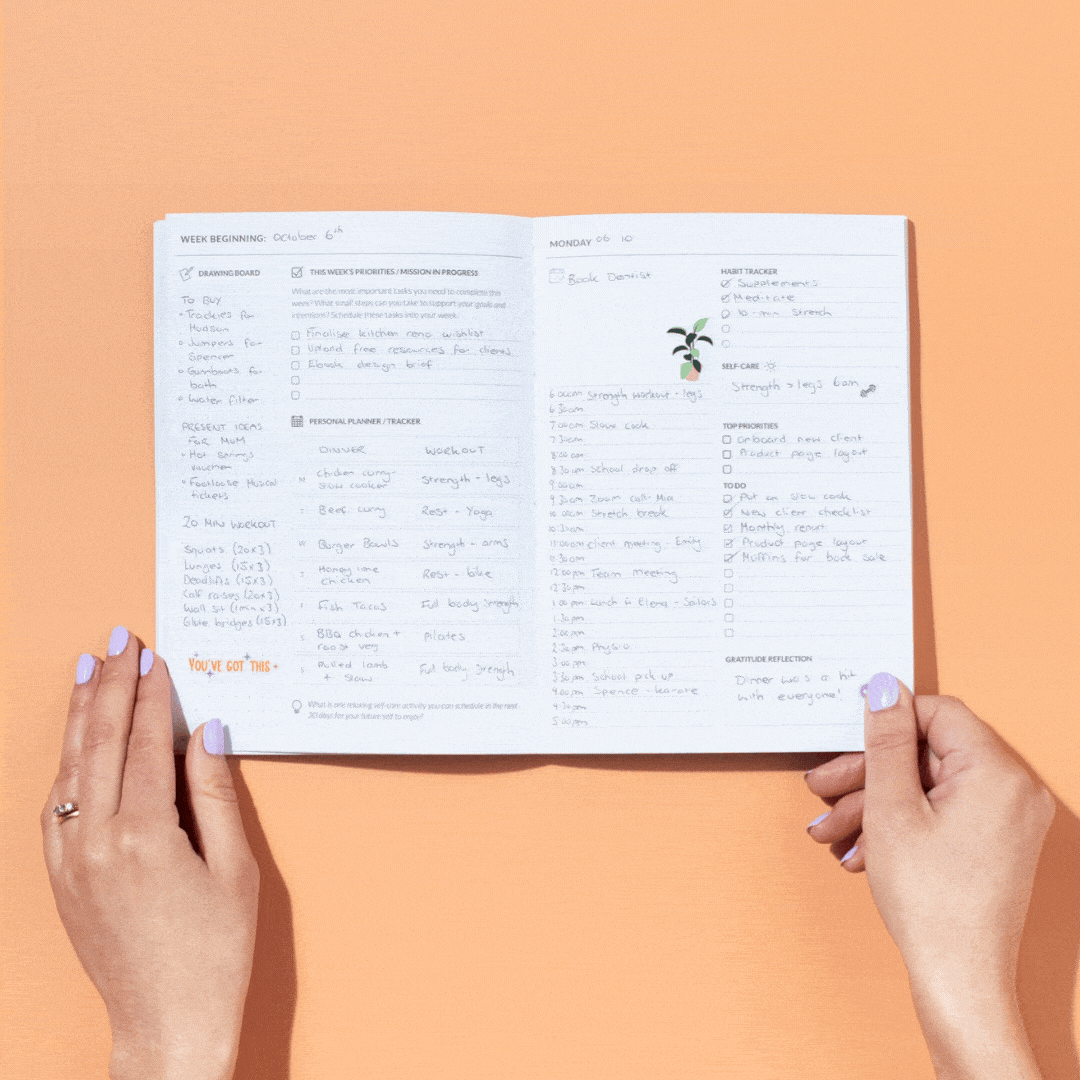 WEEK BEGINNING: October 6th
DRAWING BOARD
TO BUY
Trackies for
Hudson
Jumpers for
Spencer
Gumboots for
both
Water filter
PRESENT IDEAS
FOR MUM
Hot Springs
voucher
Footloose Musical
tickets
20 MIN WORKOUT
Squats (20x3)
Lunges (15x3)
Deadlifts (15x3)
Calf raises (20x3)
Wall sit (1min x3)
Glute bridges (15x3)
YOU'VE GOT THIS
THIS WEEK'S PRIORITIES / MISSION IN PROGRESS
What are the most important tasks you need to complete this
week? What small steps can you take to support your goals and
intentions? Schedule these tasks into your week.
Finalise kitchen reno wishlist
Upload free resources for clients
Ebook design brief
PERSONAL PLANNER / TRACKER
DINNER WORKOUT
M chicken curry- slow cooker Strength - legs
T Beef curry Rest - Yoga
W Burger Bowls Strength - arms
T Honey lime chicken Rest - bike
F Fish Tacos Full body Strength
S BBQ chicken + roast veg Pilates
S Pulled lamb + slaw Full body Strength
What is one relaxing self-care activity you can schedule in the next
30 days for your future self to enjoy?
MONDAY 06 10
Book Dentist
6:00am Strength workout - legs
6:30am
7:00am Slow cook
7:30am
8:00am
8:30am School drop off
9:00am
9:30am Zoom call - Mia
10:00am Stretch break
10:30am
11:00am Client meeting - Emily
11:30am
12:00pm Team meeting
12:30pm
1:00pm Lunch w Elena - Sailors
1:30pm
2:00pm
2:30pm Physio
3:00pm
3:30pm School pick up
4:00pm Spence - karate
4:30pm
5:00pm
HABIT TRACKER
Supplements
Meditate
10-min Stretch
SELF-CARE
Strength > legs 6am
TOP PRIORITIES
onboard new client
Product page layout
TO DO
Put on slow cook
New client checklist
Monthly report
Product page layout
Muffins for book sale
GRATITUDE REFLECTION
Dinner was a hit
with everyone!